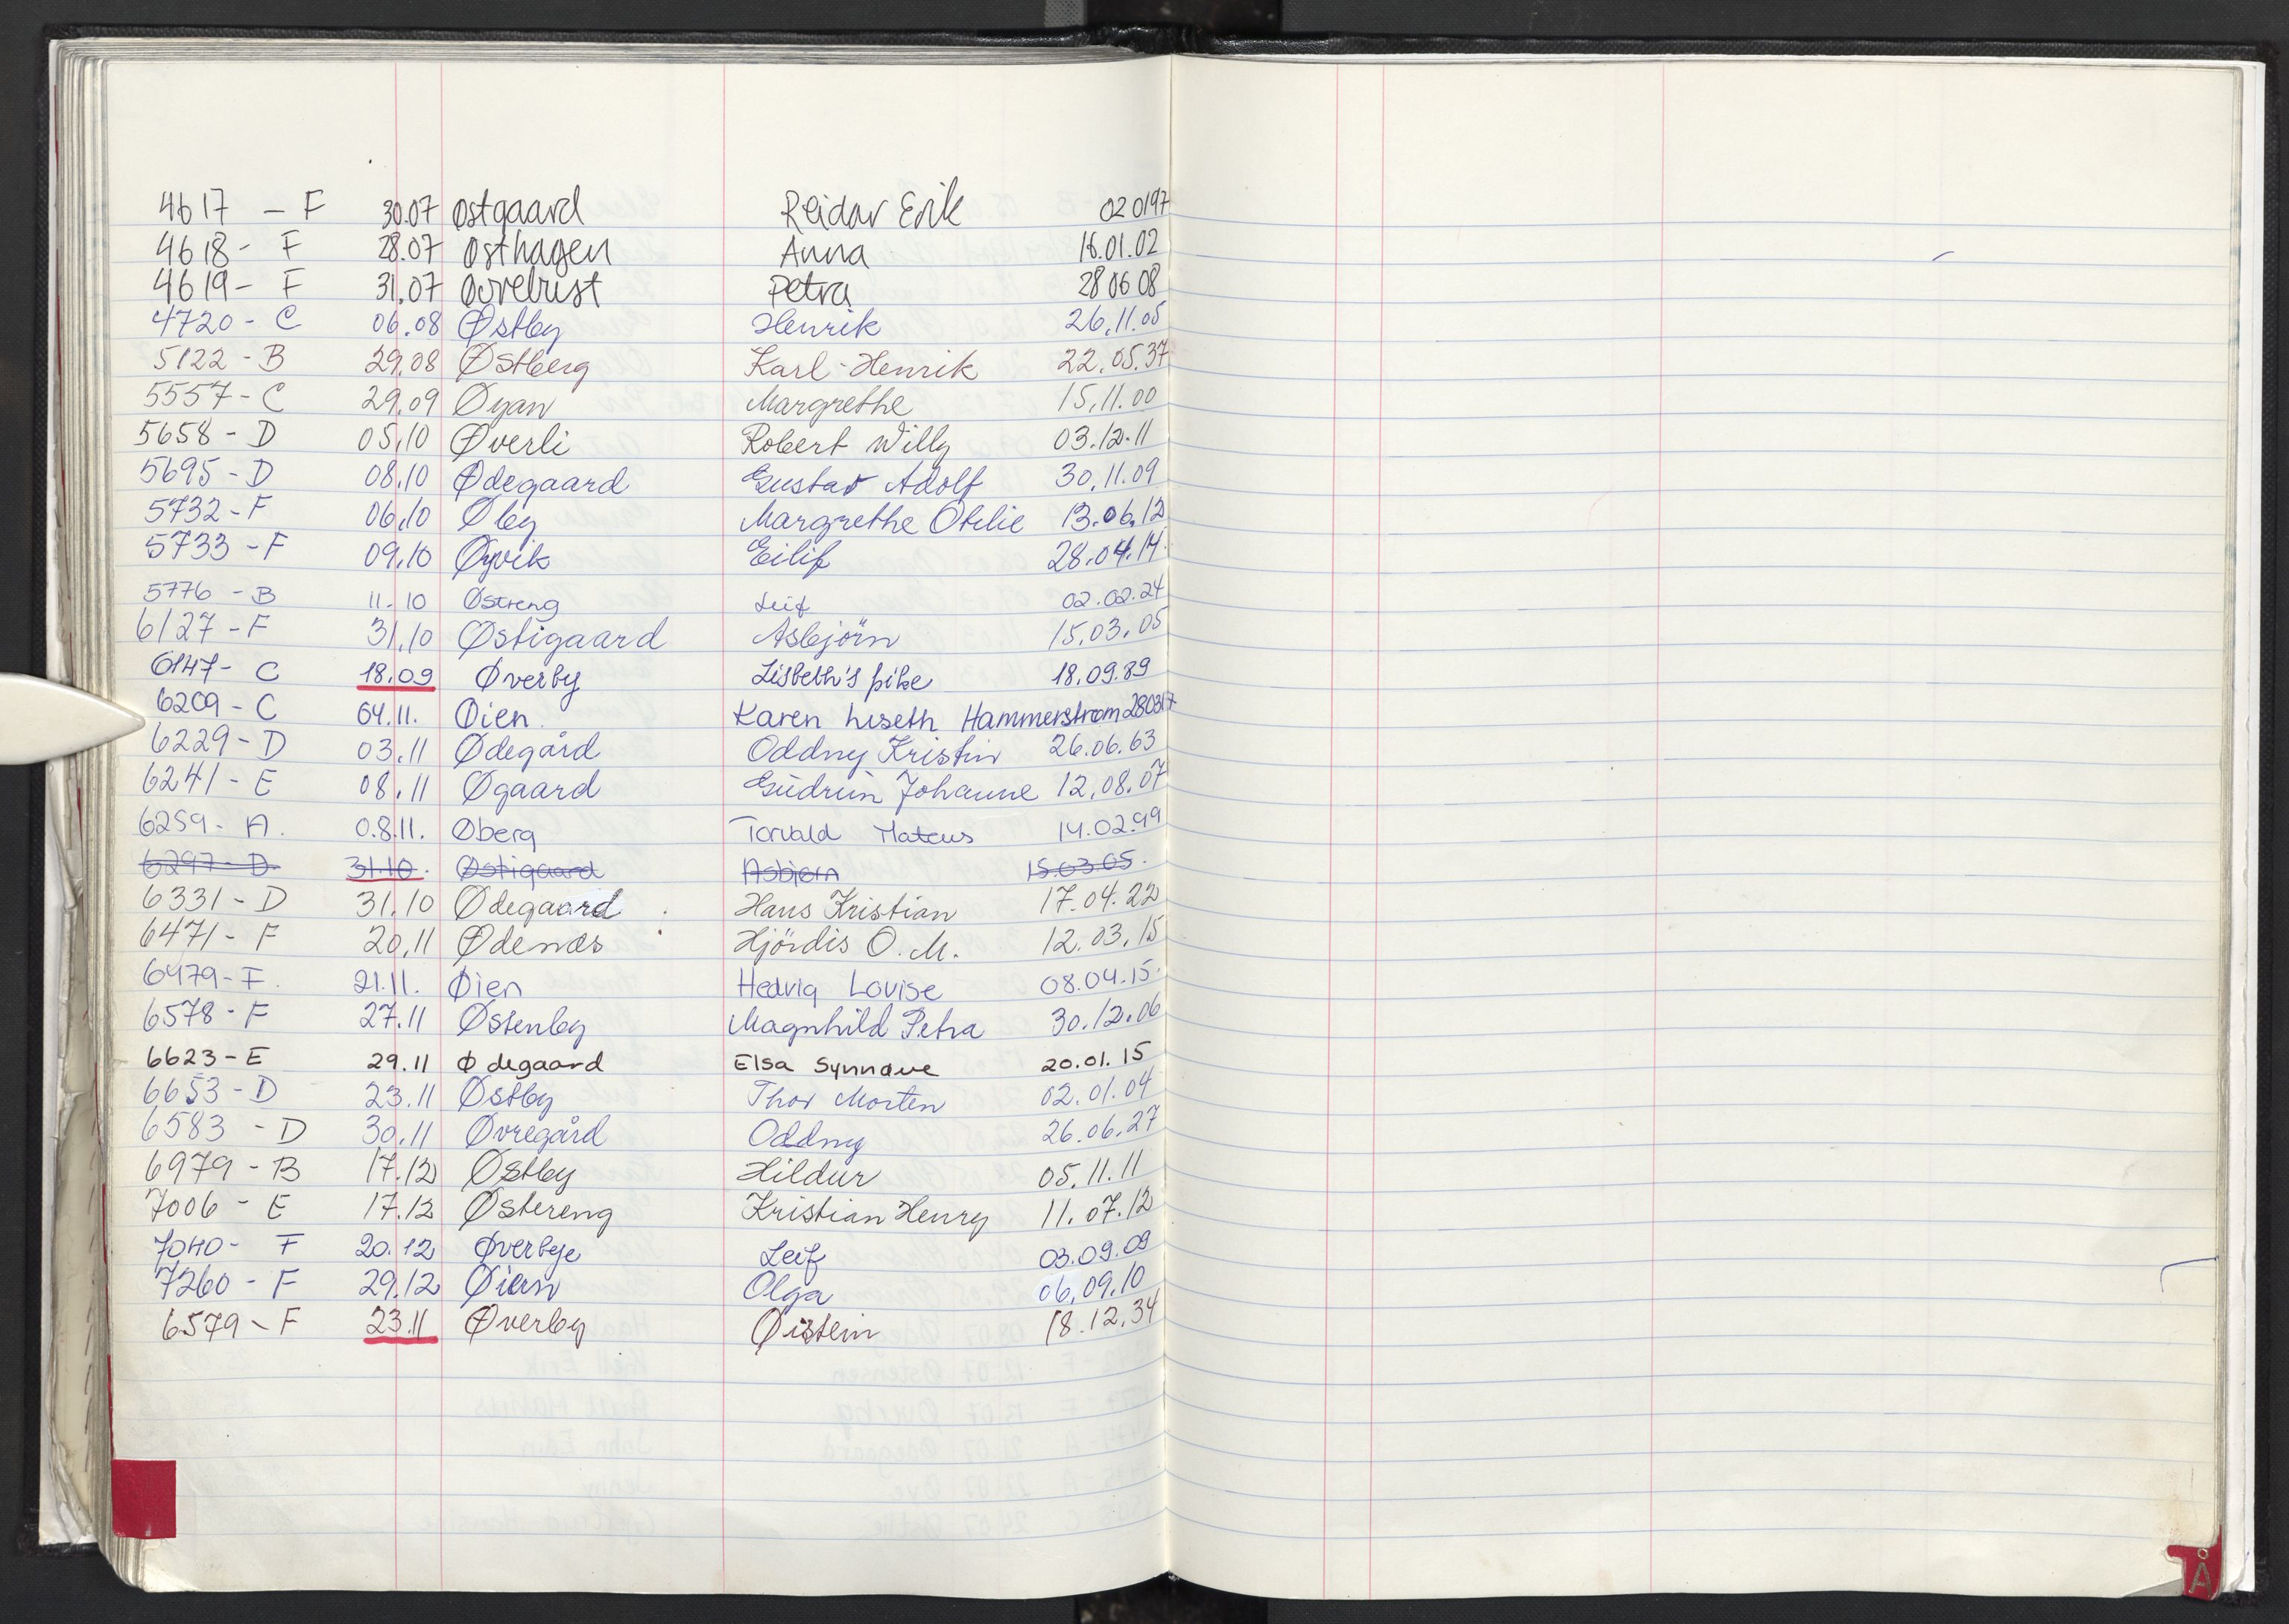 4617 - F 30.07 Østgaard Reidar Erik 02 01 97
4618 - F 28.07 Østhagen Anna 16.01.02
4619 - F 31.07 Øvrebust Petra 28 06 08
4720 - C 06.08 Østby Henrik 26.11.05
5122 - B 29.08 Østberg Karl-Henrik 22.05.37
5557 - C 29.09 Øyan Margrethe 15.11.00
5658 - D 05.10 Øverli Robert Willy 03.12.11
5695 - D 08.10 Ødegaard Gustav Adolf 30.11.09
5732 - F 06.10 Øby Margrethe Otelie 13.06.12
5733 - F 09.10 Øyvik Eilif 28.04.14.
5776 - B 11.10 Østreng Leif 02.02.24
6127 - F 31.10 Østigaard Asbjörn 15.03.05
6147 - C 18.09 Øverby Lisbeth's pike 18.09.89
6209 - C 04.11. Øien. Karen Liseth Hammerstrøm 280317
6229 - D 03.11 Ødegård Oddny Kristin 26.06.63
6241 - E 08.11 Øgaard Gudrun Johanne 12.08.07
6259 - A. 0.8.11. Øberg Torvald Mateus 14.02.99
6297 - D. 31.10. Østigaard Asbjørn 15.03.05.
6331 - D 31.10 Ødegaard Hans Kristian 17.04.22
6471 - F 20.11 Ødenæs Hjördis O. M. 12.03.15
6479 - F. 21.11. Øien Hedvig Lovise 08.04.15.
6578 - F 27.11 Østenby Magnhild Petra 30.12.06
6623 - E 29.11 Ødegaard Elsa Synnøve 20.01.15
6653 - D 23.11 Østby Thor Morten 02.01.04
6583 - D 30.11 Øvregård Oddny 26.06.27
6979 - B 17.12 Østby Hildur 05.11.11
7006 - E 17.12 Østereng Kristian Henry 11.07.12
7040 - F 20.12 Øverbye Leif 03.09.09
7260 - F 29.12 Øian Olga 06.09.10
6579 - F 23.11 Øverby Øistein 18.12.34
Å